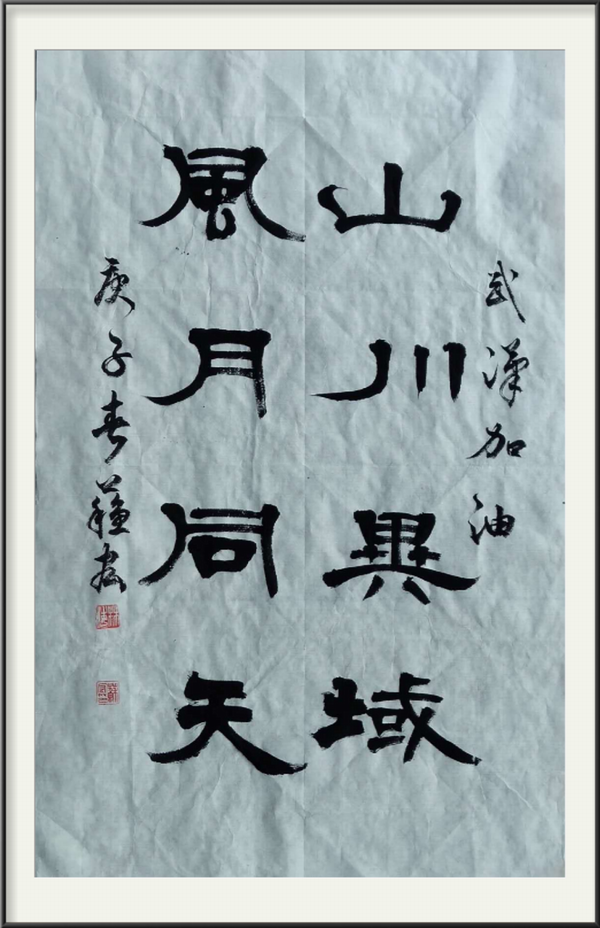 武漢加油
山川異域
風月同天
庚子春蘓